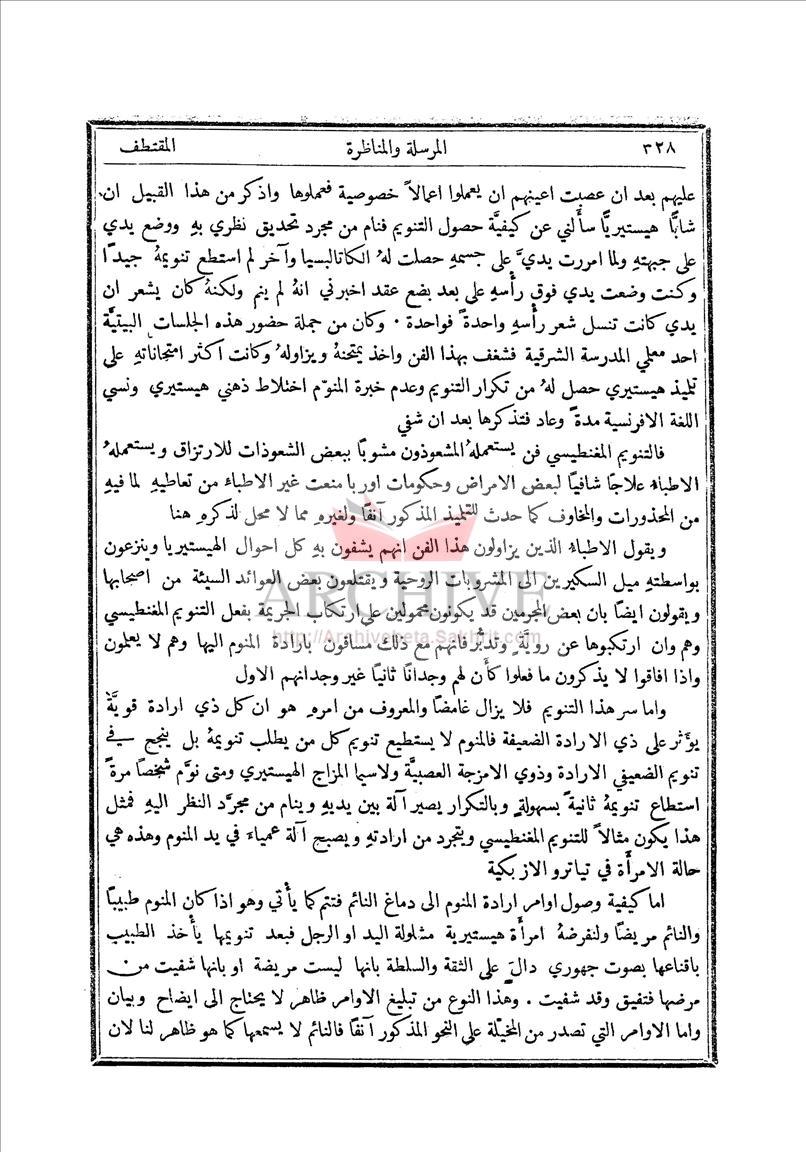 ٣٢٨ المرسلة والمناظرة المقتطف
عليهم بعد ان عصبت اعينهم ان يعملوا اعمالاً خصوصية فعملوها واذكر من هذا القبيل ان
شابًّا هيستيريًّا سأَلني عن كيفيَّة حصول التنويم فنام من مجرد تحديق نظري بهِ ووضع يدي
على جبهتهِ ولما امررت يديَّ على جسمهِ حصلت لهُ الكاتالبسيا وآخر لم استطع تنويمهُ جيداً
وكنت وضعت يدي فوق رأْسهِ على بعد بضع عقد اخبرني انهُ لم ينم ولكنهُ كان يشعر ان
يدي كانت تنسل شعر رأْسهِ واحدةً فواحدة . وكان من جملة حضور هذه الجلسات البيتيَّة
احد معلمي المدرسة الشرقية فشغف بهذا الفن واخذ يمتحنهُ ويزاولهُ وكانت اكثر امتحاناتهِ على
تلميذ هيستيري حصل لهُ من تكرار التنويم وعدم خبرة المنوّم اختلاط ذهني هيستيري ونسي
اللغة الافرنسية مدةً وعاد فتذكرها بعد ان شفي
فالتنويم المغنطيسي فن يستعملهُ المشعوذون مشوبًا ببعض الشعوذات للارتزاق ويستعملهُ
الاطباء علاجًا شافيًا لبعض الامراض وحكومات اوربا منعت غير الاطباء من تعاطيهِ لما فيهِ
من المحذورات والمخاوف كما حدث للتلميذ المذكور آنفًا ولغيرهِ مما لا محل لذكرهِ هنا
ويقول الاطباء الذين يزاولون هذا الفن انهم يشفون بهِ كل احوال الهيستيريا وينزعون
بواسطتهِ ميل السكيرين الى المشروبات الروحية ويقتلعون بعض العوائد السيئة من اصحابها
ويقولون ايضًا بان بعض المجرمين قد يكونون محمولين على ارتكاب الجريمة بفعل التنويم المغنطيسي
وهم وان ارتكبوها عن رويَّةٍ وتدبُّر فانهم مع ذلك مساقون بارادة المنوم اليها وهم لا يعلمون
واذا افاقوا لا يذكرون ما فعلوا كأَن لهم وجدانًا ثانيًا غير وجدانهم الاول
واما سر هذا التنويم فلا يزال غامضًا والمعروف من امرهِ هو ان كل ذي ارادة قويَّة
يوَّثر على ذي الارادة الضعيفة فالمنوم لا يستطيع تنويم كل من يطلب تنويمهُ بل ينجح في
تنويم الضعيفي الارادة وذوي الامزجة العصبيَّة ولاسيما المزاج الهيستيري ومتى نوَّم شخصًا مرةً
استطاع تنويمهُ ثانيةً بسهولةٍ وبالتكرار يصير آلة بين يديهِ وينام من مجرَّد النظر اليهِ فمثل
هذا يكون مثالاً للتنويم المغنطيسي ويتجرد من ارادتهِ ويصبح آلة عمياء في يد المنوم وهذه هي
حالة الامرأَة في تياترو الازبكية
اما كيفية وصول اوامر ارادة المنوم الى دماغ النائم فتتم كما يأْتي وهو اذا كان المنوم طبيبًا
والنائم مريضًا ولنفرضهُ امرأَة هيستيرية مشلولة اليد او الرجل فبعد تنويمها يأْخذ الطبيب
باقناعها بصوت جهوري دالٍّ على الثقة والسلطة بانها ليست مريضة او بانها شفيت من
مرضها فتفيق وقد شفيت . وهذا النوع من تبليغ الاوامر ظاهر لا يحتاج الى ايضاح وبيان
واما الاوامر التي تصدر من المخيّلة على النحو المذكور آنفًا فالنائم لا يسمعها كما هو ظاهر لنا لان
ARCHIVE
http://Archivebeta.Sakhrit.com